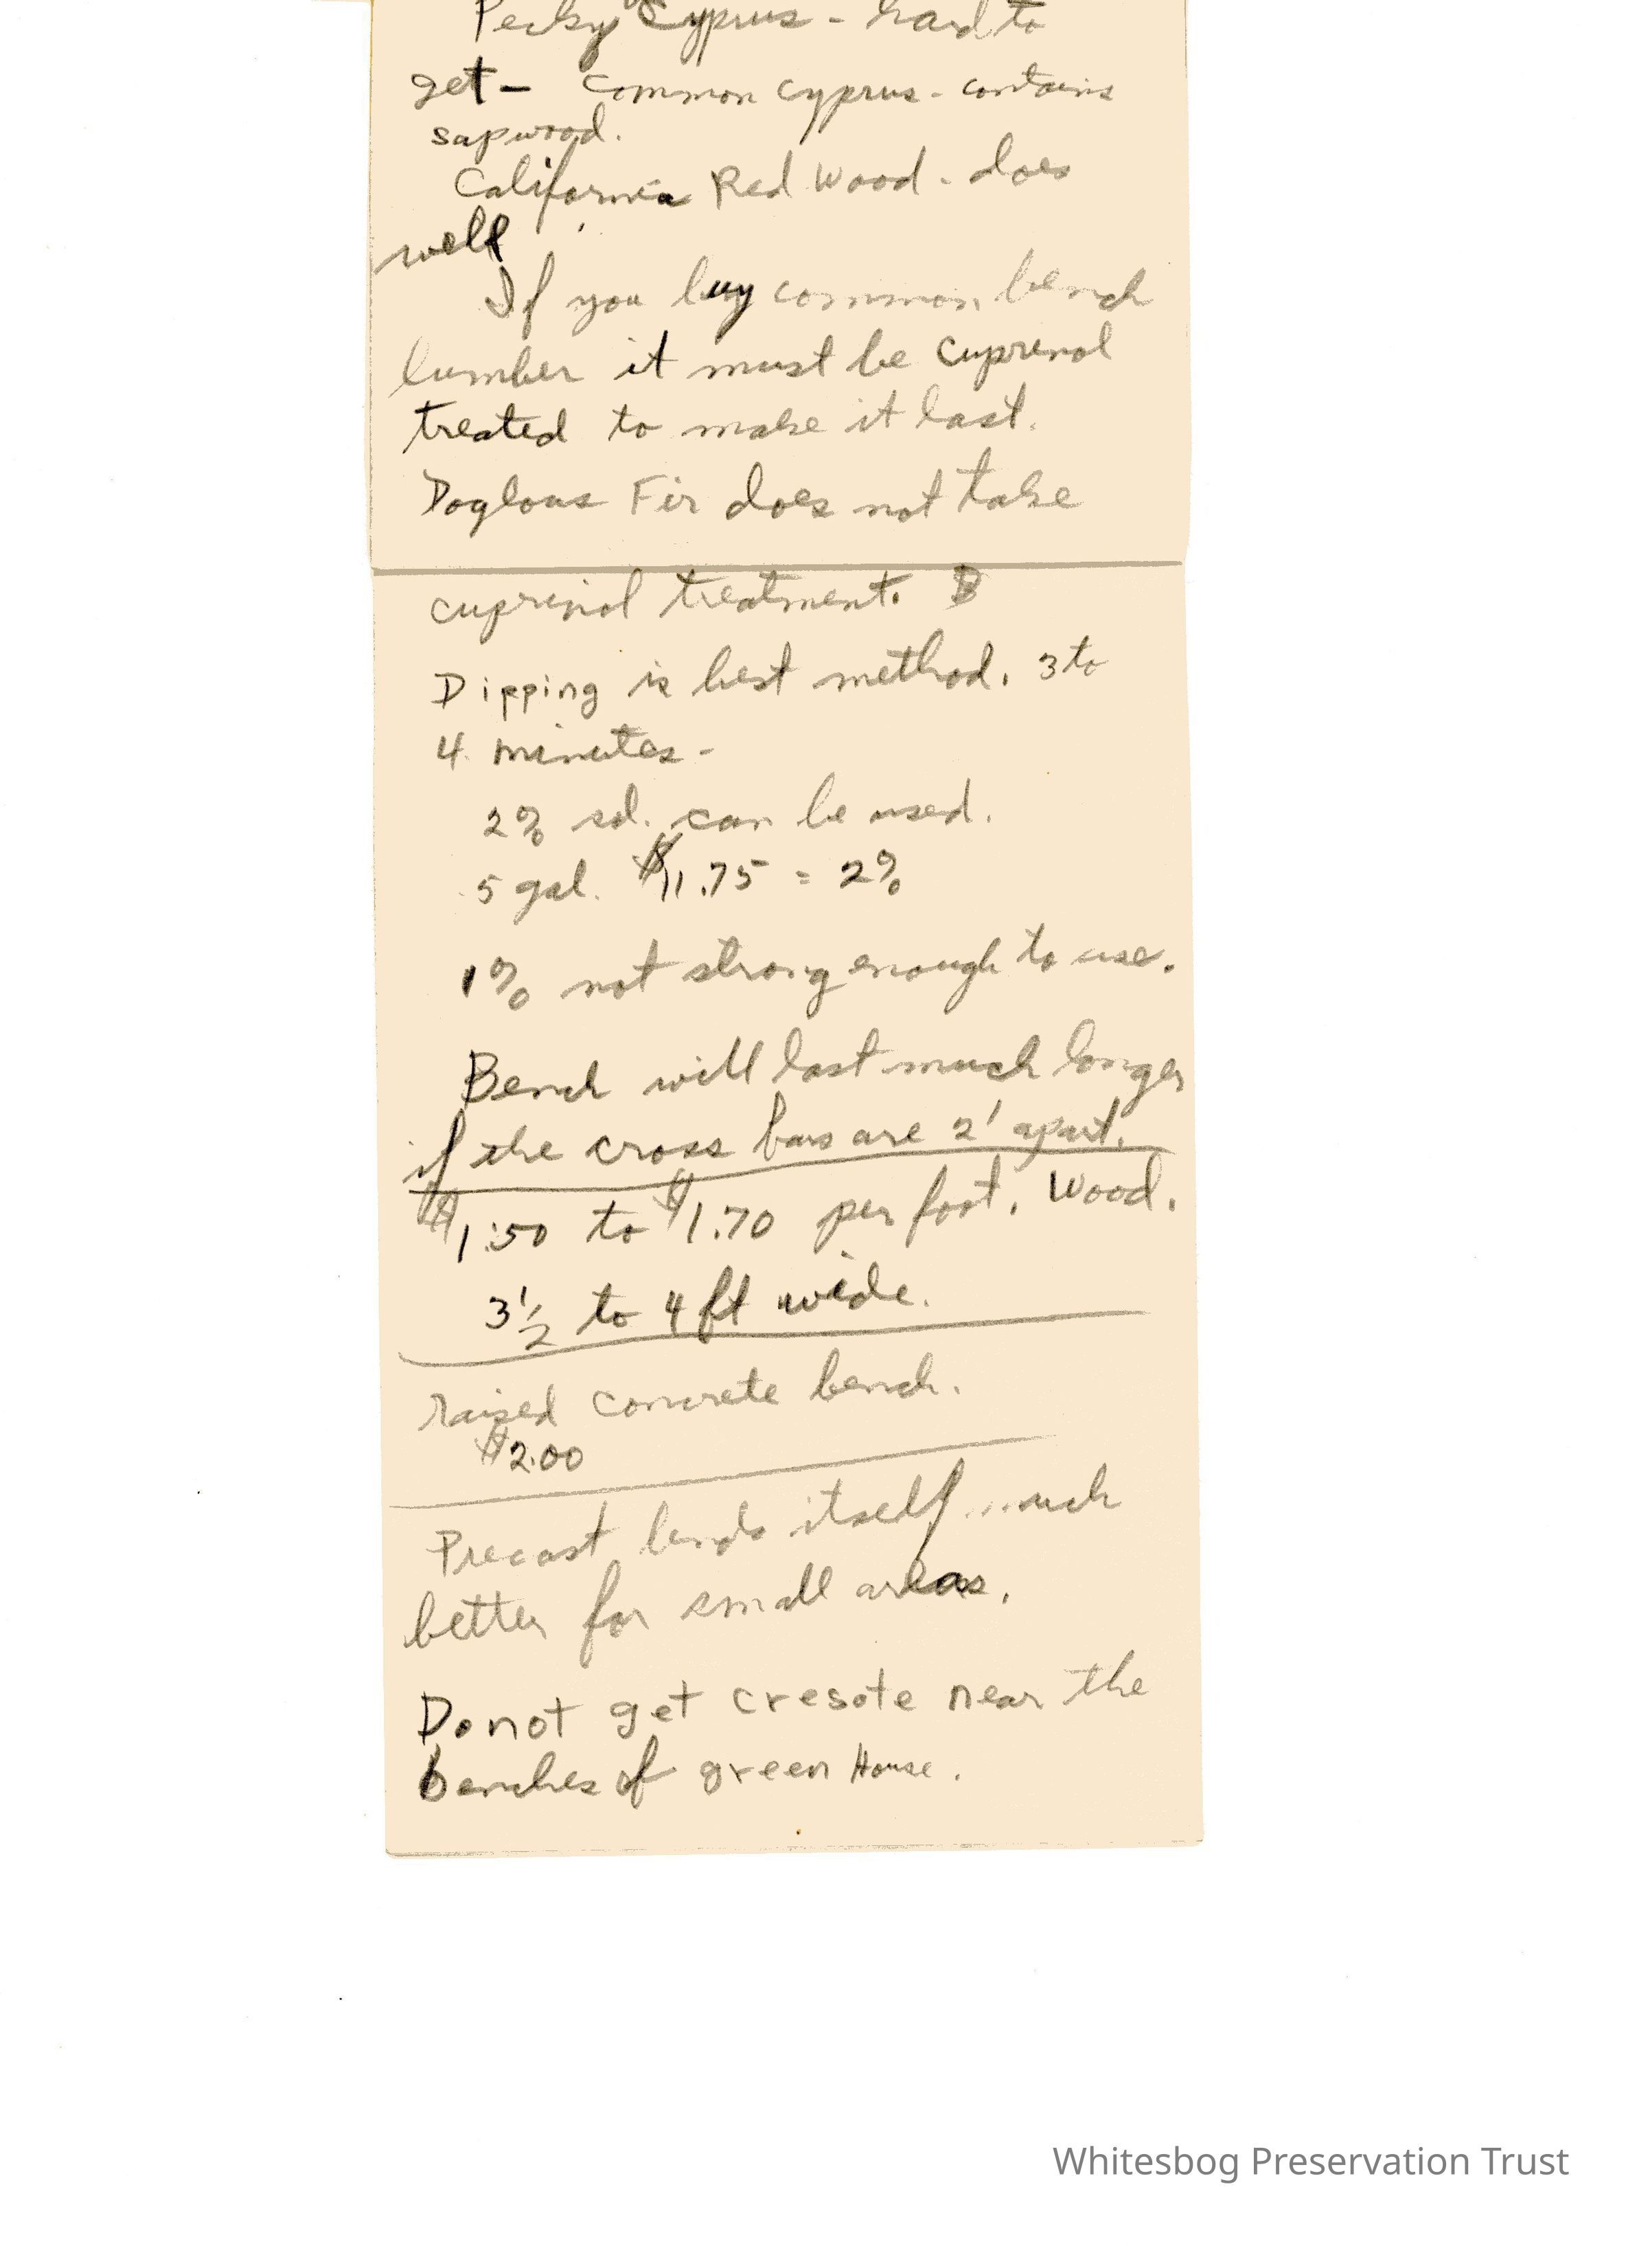 Pecky Cyprus - hard to
get - Common Cyprus - contains
sapwood.
California Red Wood - does
well
If you buy common bench
lumber it must be Cuprenol
treated to make it last.
Doglous Fir does not take
cuprinol treatment. B
Dipping is best method. 3 to
4 minutes -
2% sol. can be used.
5 gal. $11.75 = 2%
1% not strong enough to use.
Bench will last much longer
if the cross bars are 2' apart.
$1.50 to $1.70 per foot. Wood.
3 1/2 to 4 ft wide.
raised concrete bench.
$2.00
Precast lends itself much
better for small areas.
Do not get cresote near the
benches of green House.
Whitesbog Preservation Trust